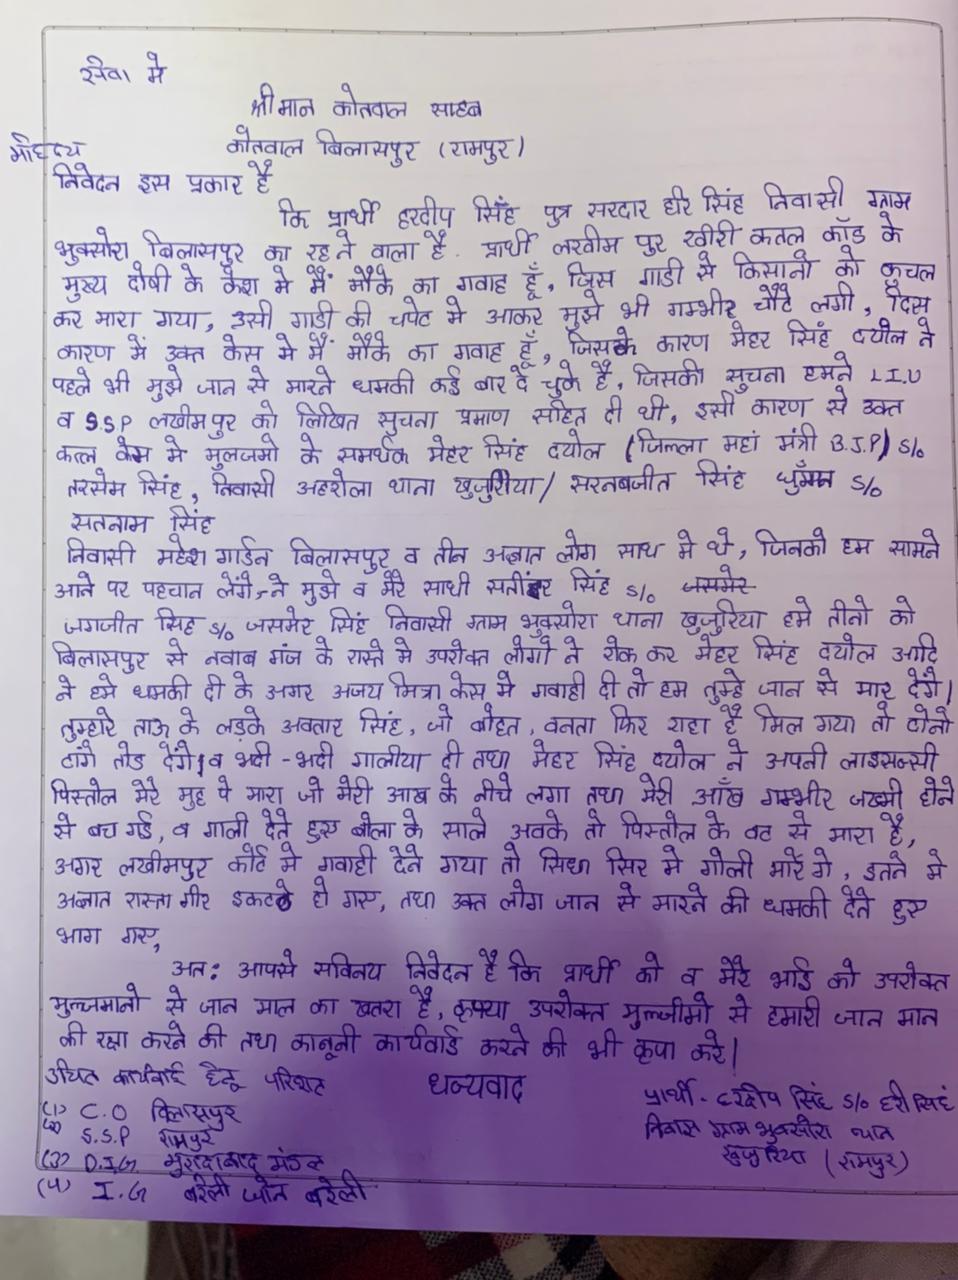 सेवा मे
श्रीमान कोतवाल साहब
मोहदय कोतवाल बिलासपुर (रामपुर)
निवेदन इस प्रकार है
कि प्रार्थी हरदीप सिंह पुत्र सरदार हरि सिंह निवासी ग्राम
भुक्सोरा बिलासपुर का रहने वाला है. प्रार्थी लखीम पुर खीरी कतल काँड के
मुख्य दोषी के केश मे मैं मौके का गवाह हूँ, जिस गाडी से किसानो को कुचल
कर मारा गया, उसी गाडी की चपेट मे आकर मुझे भी गम्भीर चौटे लगी, जिस
कारण में उक्त केस मे मैं मौके का गवाह हूँ, जिसके कारण मेहर सिंह दयोल ने
पहले भी मुझे जान से मारने धमकी कई बार दे चुके है, जिसकी सुचना हमने L.I.U
व S.S.P लखीमपुर को लिखित सुचना प्रमाण सहित दी थी, इसी कारण से उक्त
कत्ल केस मे मुलजमो के समर्थक मेहर सिंह दयोल (जिल्ला महां मंत्री B.J.P) S/o
तरसेम सिंह, निवासी अहरोला थाना खुजुरिया/ सरनबजीत सिंह S/o
सतनाम सिंह
निवासी महेश गार्डन बिलासपुर व तीन अज्ञात लोग साथ मे थे, जिनको हम सामने
आने पर पहचान लेंगे, ने मुझे व मेरे साथी सिंह S/o जसमेर
जगजीत सिंह S/o जसमेर सिंह निवासी ग्राम भुक्सोरा थाना खुजुरिया हमे तीनो को
बिलासपुर से नवाब गंज के रास्ते मे उपरोक्त लोगों ने रोक कर मेहर सिंह दयोल आदि
ने हमे धमकी दी के अगर अजय मिश्रा केस मे गवाही दी तो हम तुम्हे जान से मार देगें।
तुम्हारे ताऊ के लड़के अवतार सिंह, जो बोहत, बनता फिर राहा है मिल गया तो दोनो
टांगे तोड देंगे। व भद्दी-भद्दी गालीया दी तथा मेहर सिंह दयोल ने अपनी लाइसन्सी
पिस्तोल मेरे मुह पे मारा जो मेरी आख के नीचे लगा तथा मेरी आँख गम्भीर जख्मी होने
से बच गई, व गाली देते हुए बोला के साले अबके तो पिस्तोल के बट से मारा है,
अगर लखीमपुर कोर्ट मे गवाही देने गया तो सिधा सिर मे गोली मारें गे, इतने मे
अज्ञात रास्ता गीर इकटठे हो गए, तथा उक्त लोग जान से मारने की धमकी देते हुए
भाग गए,
अत: आपसे सविनय निवेदन है कि प्रार्थी को व मेरे भाई को उपरोक्त
मुल्जमानो से जान माल का खतरा है, कृप्या उपरोक्त मुल्जीमो से हमारी जान माल
की रक्षा करने की तथा कानूनी कार्यवाई करने की भी कृपा करे।
उचित कार्यवाई हेतू धन्यवाद
प्रार्थी - हरदीप सिंह S/o हरी सिंह
निवास ग्राम भुक्सोरा थाना
खुजुरिया (रामपुर)
(1) C.O बिलासपुर
(2) S.S.P रामपुर
(3) D.I.G मुरादाबाद मंडल
(4) I.G बरेली जोन बरेली